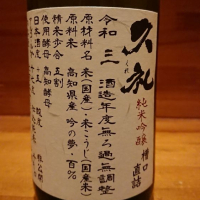 久礼
純米吟醸
槽口
直詰
令和三酒造年度無ろ過無調整
原材料名 米(国産)・米こうじ(国産米)
原料米 高知県産 吟の夢 百%
精米歩合 五割
使用酵母 高知酵母
日本酒度